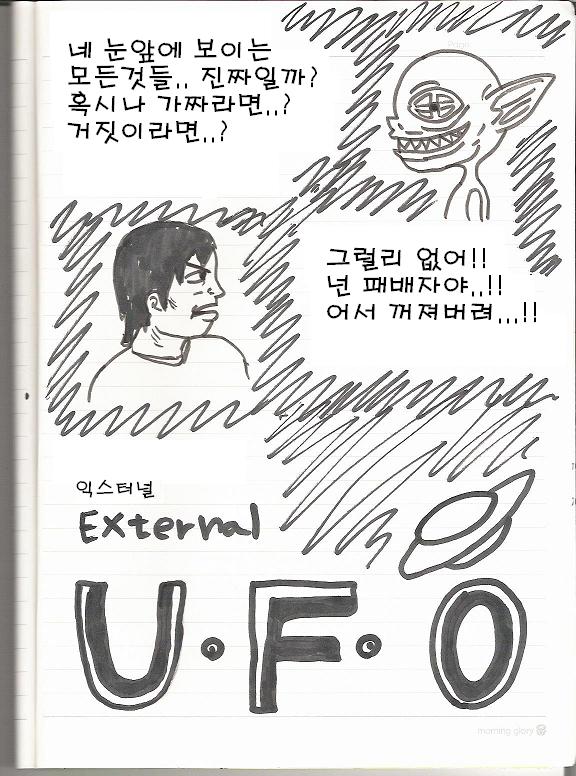 네 눈앞에 보이는
모든것들.. 진짜일까?
혹시나 가짜라면..?
거짓이라면..?
그럴리 없어!!
넌 패배자야..!!
어서 꺼져버려...!!
익스터널
External
U·F·O
morning glory